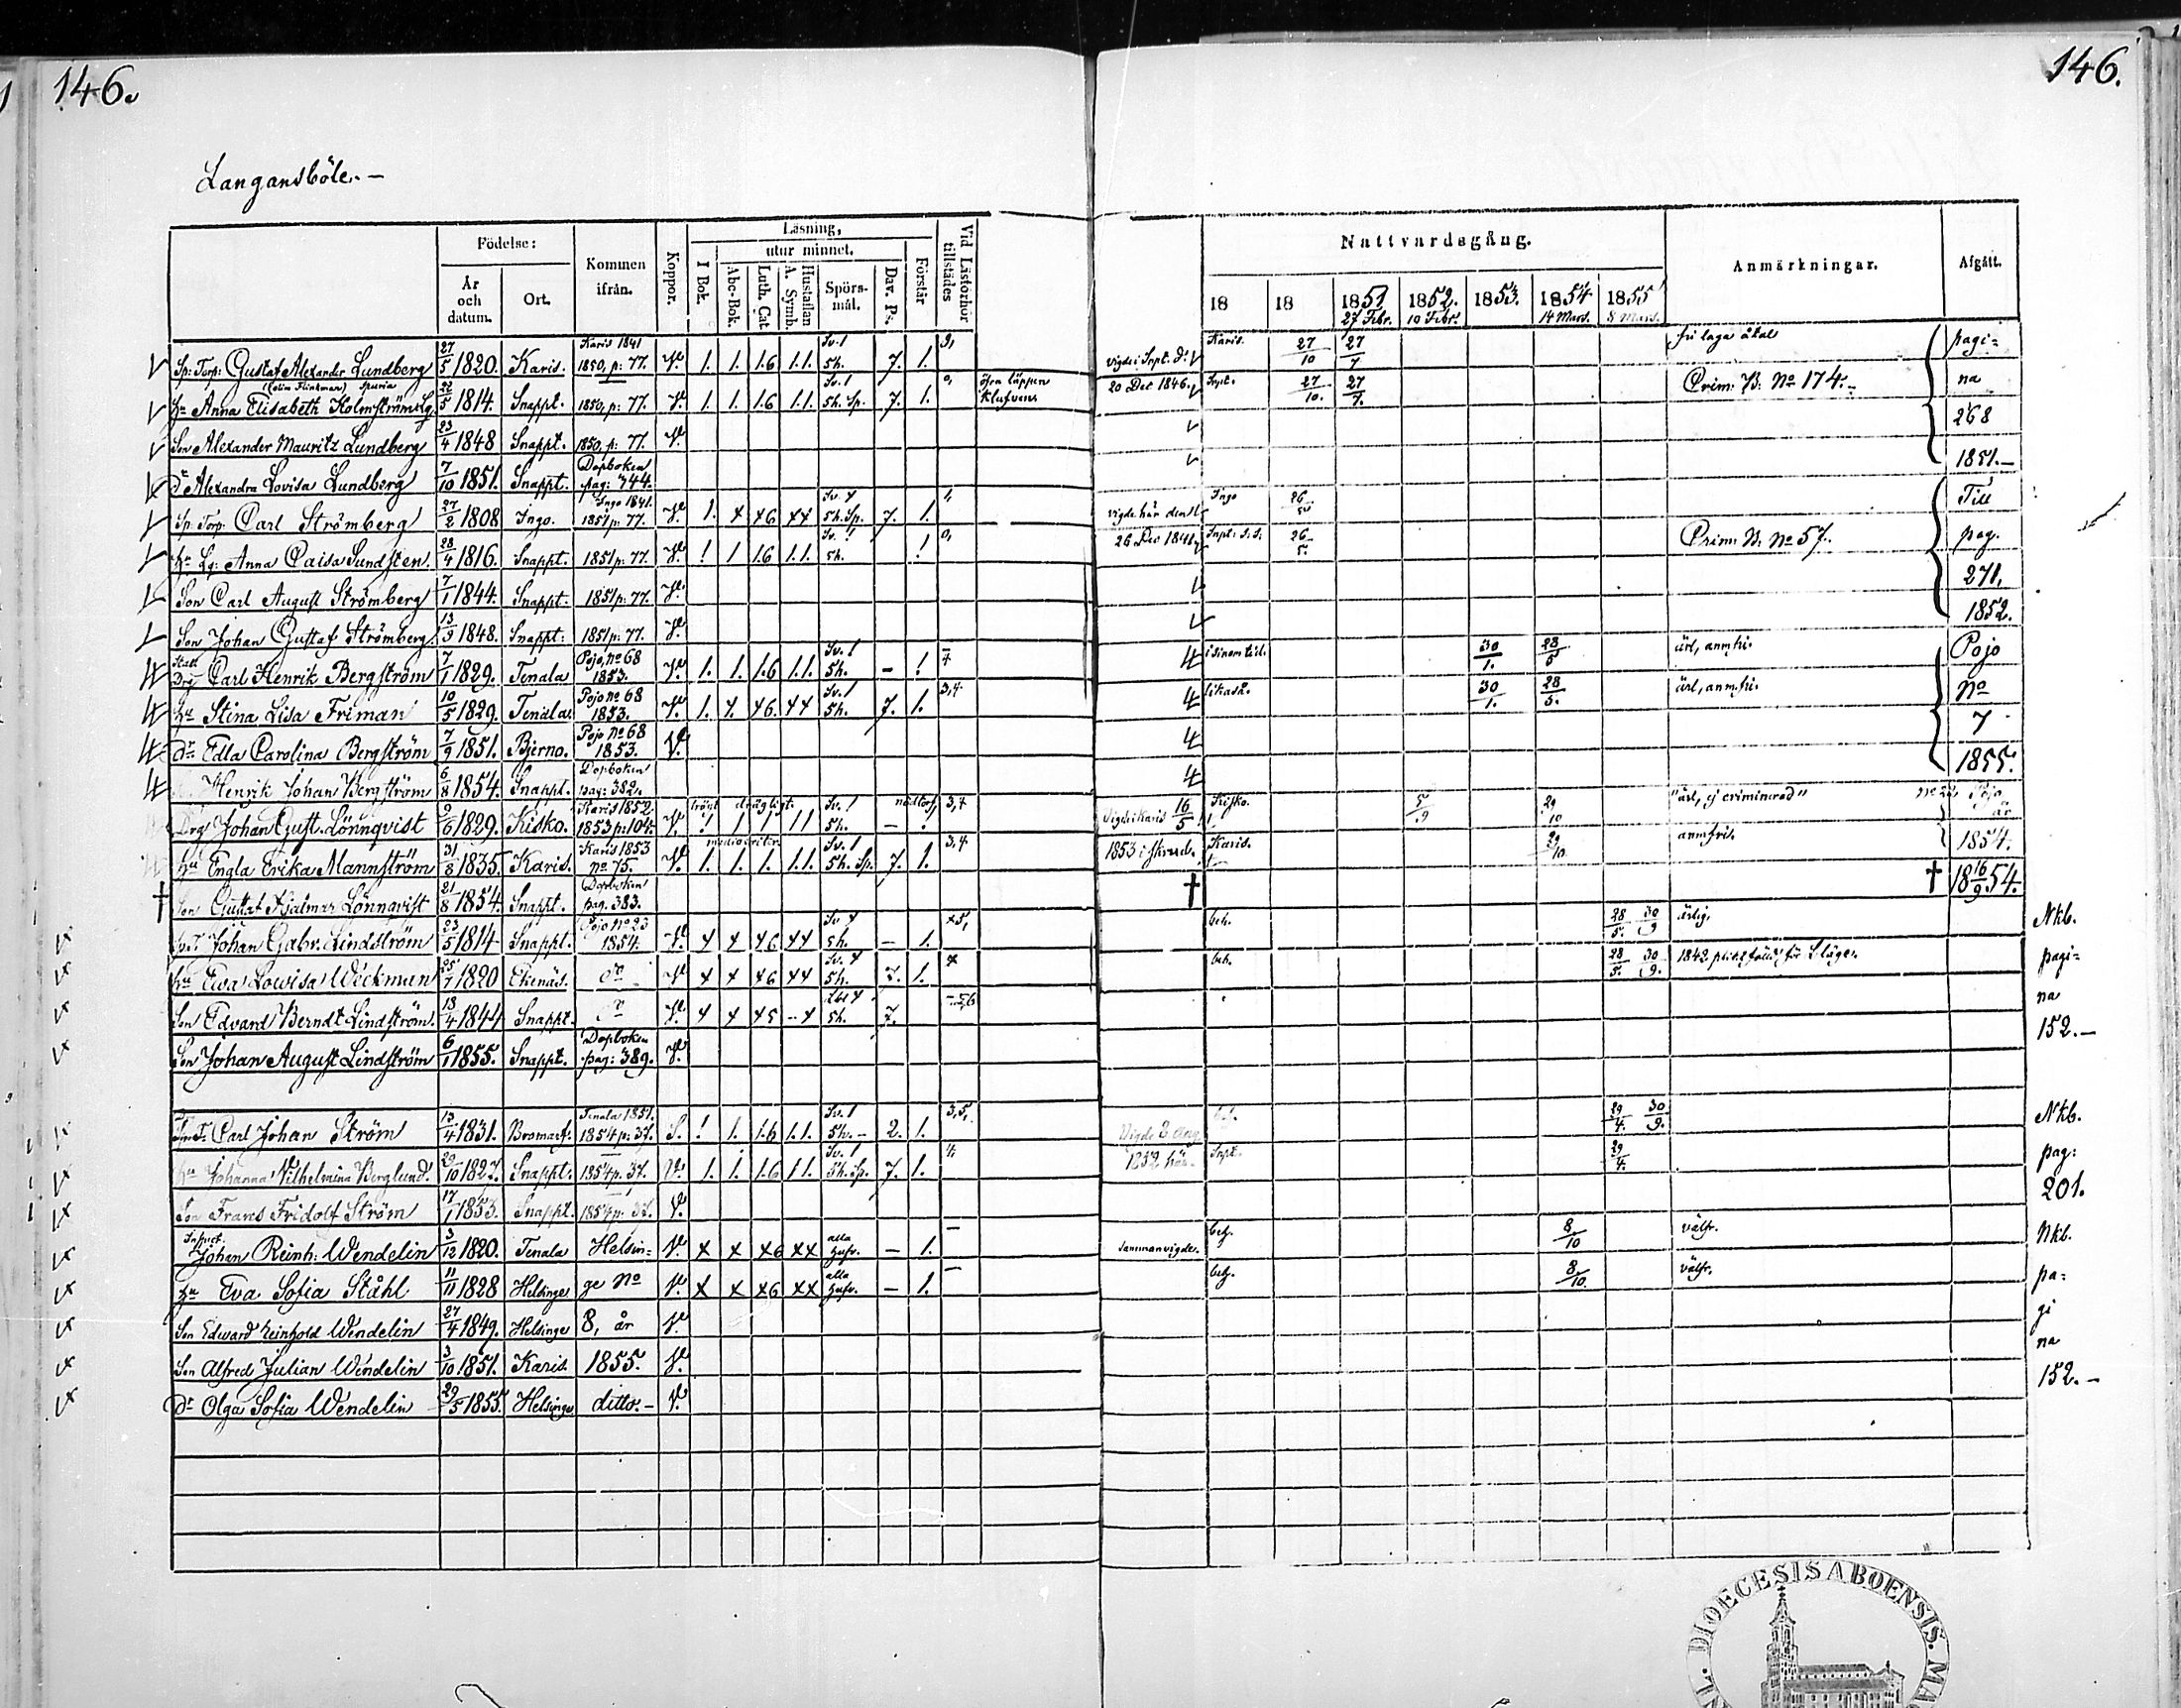 146.
146.
Langansböle.-
Födelse:
Kommen ifrån.
Koppor.
Läsning,
utur minnet.
I Bok.
Abc-Bok.
Luth. Cat.
Hustaflan A. Symb.
Spörs-mål.
Dav. Ps.
Förstår
Vid Läsförhör tillstädes
År och datum.
Ort.
Nattvardsgång.
Anmärkningar.
Afgått.
18
18
1851 27 Febr.
1852. 10 Febr.
1853.
1854 14 Mars.
1855 8 Mars.
Sp: Torp: Gustaf Alexander Lundberg 27/5 1820. Karis. Karis 1841 1850, p: 77. 1. 1. 1.6 1.1. Sv. 1 5h. 7. 1. Karis. 27/10 27/7 pagi=
hu Anna Elisabeth Holmström 22/5 1814. Snappt. 1850, p: 77. 1. 1. 1.6 1.1. Sv. 1 5h. Sp. 7. 1. 20 Dec 1846. Snpt. 27/10. 27/7. Crim: B: No 174.- na
Son Alexander Mauritz Lundberg 23/4 1848 Snappt. 1850, p: 77. 268
Dr Alexandra Lovisa Lundberg 7/10 1851. Snappt. Döpboken pag: 344. 1851.-
Sp: Torp: Carl Strömberg 27/2 1808 Ingo. Ingo 1841. 1851 p: 77. 1. x x6 xx 5h. Sp. 7. 1. vigde här den Ingo Till
hu Anna Caisa Sundsten. 28/4 1816. Snappt. 1851 p: 77. 1 1 1.6 1.1. 5h. 1 26 Dec 1841 26/5. Crim: B: No 57. pag.
Son Carl August Strömberg 7/1 1844. Snappt. 1851 p: 77. 271,
Son Johan Gustaf Strömberg 13/9 1848. Snappt: 1851 p: 77. 1852.
Carl Henrik Bergström 7/1 1829. Tenala Pojo, no 68 1853. 1. 1. 1.6 1.1. Sv. 1 5h. - 1 i sinom tid. 30/1. 28/5 ärl, anm.fri. Pojo
hu Stina Lisa Friman 10/5 1829. Tenala. Pojo no 68 1853. 1. x. x6. xx Sv. 1 5h. 7. 1. 3,4 likaså. 30/1. 28/5. ärl, anm.fri. No
Dr Edla Carolina Bergström 7/9 1851. Bjerno. Pojo No 68 1853. 7
Henrik Johan Bergström 6/8 1854. Snappt. Döpboken pag: 382. 1855.
Drg Johan Gust. Lönnqvist 9/6 1829. Kisko. Karis 1852. 1853 p: 104. trögt drägligt. Sv. 1 5h. - nödtorf. 3,4 Vigde i Karis 16/5 Kisko. 5/9 29/10 "ärl, ej criminerad" Pojo
hu Engla Erika Mannström 31/8 1835. Karis. Karis 1853 No 75. mediocriter. 1. 1. 1. 1.1. Sv. 1 5h. Sp. 7. 1. 3,4 1853 Karis. 29/10 anm.fri. 1854.
† Son Gustaf Hjalmar Lönnqvist 21/8 1854. Snappt. Döpboken pag. 383. † † 18 16/9 54.
Johan Gabr. Lindström 23/5 1814 Snappt. Pojo no 23 1854. x x x6 xx Sv x 5h. - 1. bek. 28/5. 30/9 ärlig. Nkb.
hu Ewa Lowisa Weckman 25/7 1820 Ekenäs. do x x x6 xx Sv. x 5h. 7. 1. x bek. 28/5. 30/9. 1842 pligtfälld för pagi=
Son Edvard Berndt Lindström. 18/4 1844 Snappt. do x x x5 -x 5h. 7. na
Son Johan August Lindström 6/1 1855. Snappt. Döpboken pag: 389. 152.-
Carl Johan Ström 13/4 1831. Bromarf. Tenala 1851. 1854 p: 37. 1 1. 1.6 1.1. Sv. 1 5h.- 2. 1. 3,5. 29/4. 30/9. Nkb.
hu Johanna Wilhelmina Berglund. 29/10 1827. Snappt. 1854 p. 37. 1. 1. 1.6 1.1. Sv. 1 5h. Sp. 7. 1. 1852 här. Snpt. 29/4. pag:
201.
Son Frans Fridolf Ström 17/1 1853. Snappt. 1854 p: 37.
Johan Reinh: Wendelin 3/12 1820. Tenala Helsin= x x x6 xx alla - 1. - Sammanvigde. 8/10 välfr. Nkb.
hu Eva Sofia Ståhl 11/11 1828 Helsinge ge No x x x6 xx alla - 1. - 8/10. välfr. pa=
gi
Son Edward Reinhold Wendelin 27/4 1849. Helsinge 8, år na
Son Alfred Julian Wendelin 3/10 1851. Karis. 1855. 152.-
Dr Olga Sofia Wendelin 29/5 1855. Helsinge ditto.-
DIOECESIS ABOENSIS.